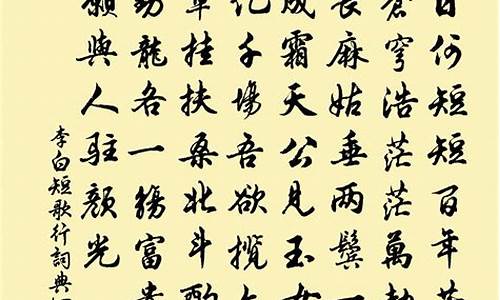 日何短短百年
蒼穹浩茫茫萬劫
長麻姑垂兩鬢一
成霜天公見玉女
千場吾欲攬六
車挂扶桑北斗酌
龍各一觴富貴
願與人駐顏光
李白短歌行詞典